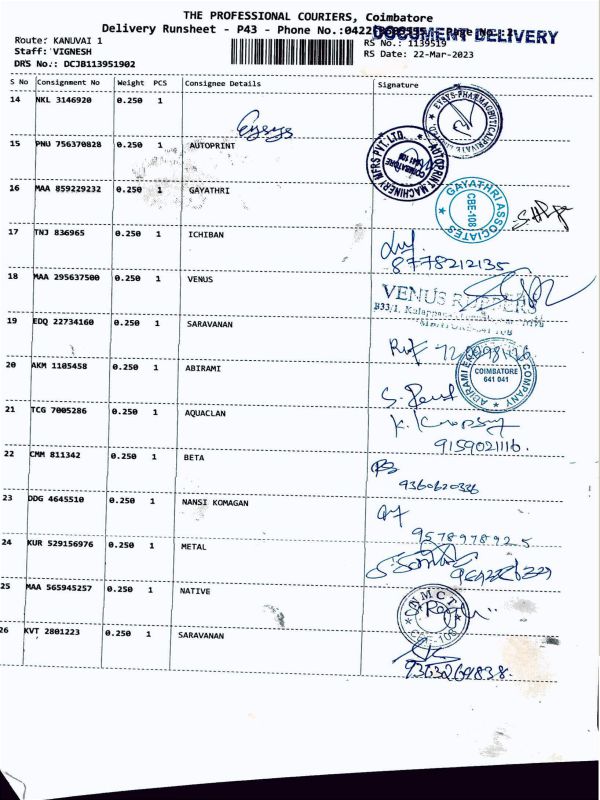 THE PROFESSIONAL COURIERS, Coimbatore
DOCUMENT DELIVERY
Delivery Runsheet - P43 - Phone No.:
Route: KANUVAI 1
RS No.: 1139519
Staff: VIGNESH
RS Date: 22-Mar-2023
DRS No.: DCJB113951902
S No Consignment No Weight PCS Consignee Details Signature
14 NKL 3146920 0.250 1
Eysys
15 PNU 756370828 0.250 1 AUTOPRINT
AUTOPRINT MACHINERY MFRS PVT. LTD.
COIMBATORE
16 MAA 859229232 0.250 1 GAYATHRI
GAYATHRI ASSOCIATES
CBE-108
17 TNJ 836965 0.250 1 ICHIBAN
8778212135
18 MAA 295637500 0.250 1 VENUS
VENUS
19 EDQ 22734160 0.250 1 SARAVANAN
20 AKM 1105458 0.250 1 ABIRAMI
COMPANY
COIMBATORE
641 041
21 TCG 7005286 0.250 1 AQUACLAN
9159021116.
22 CMM 811342 0.250 1 BETA
9360620336
23 DDG 4645510 0.250 1 NANSI KOMAGAN
9578978925
24 KUR 529156976 0.250 1 METAL
25 MAA 565945257 0.250 1 NATIVE
26 KVT 2801223 0.250 1 SARAVANAN